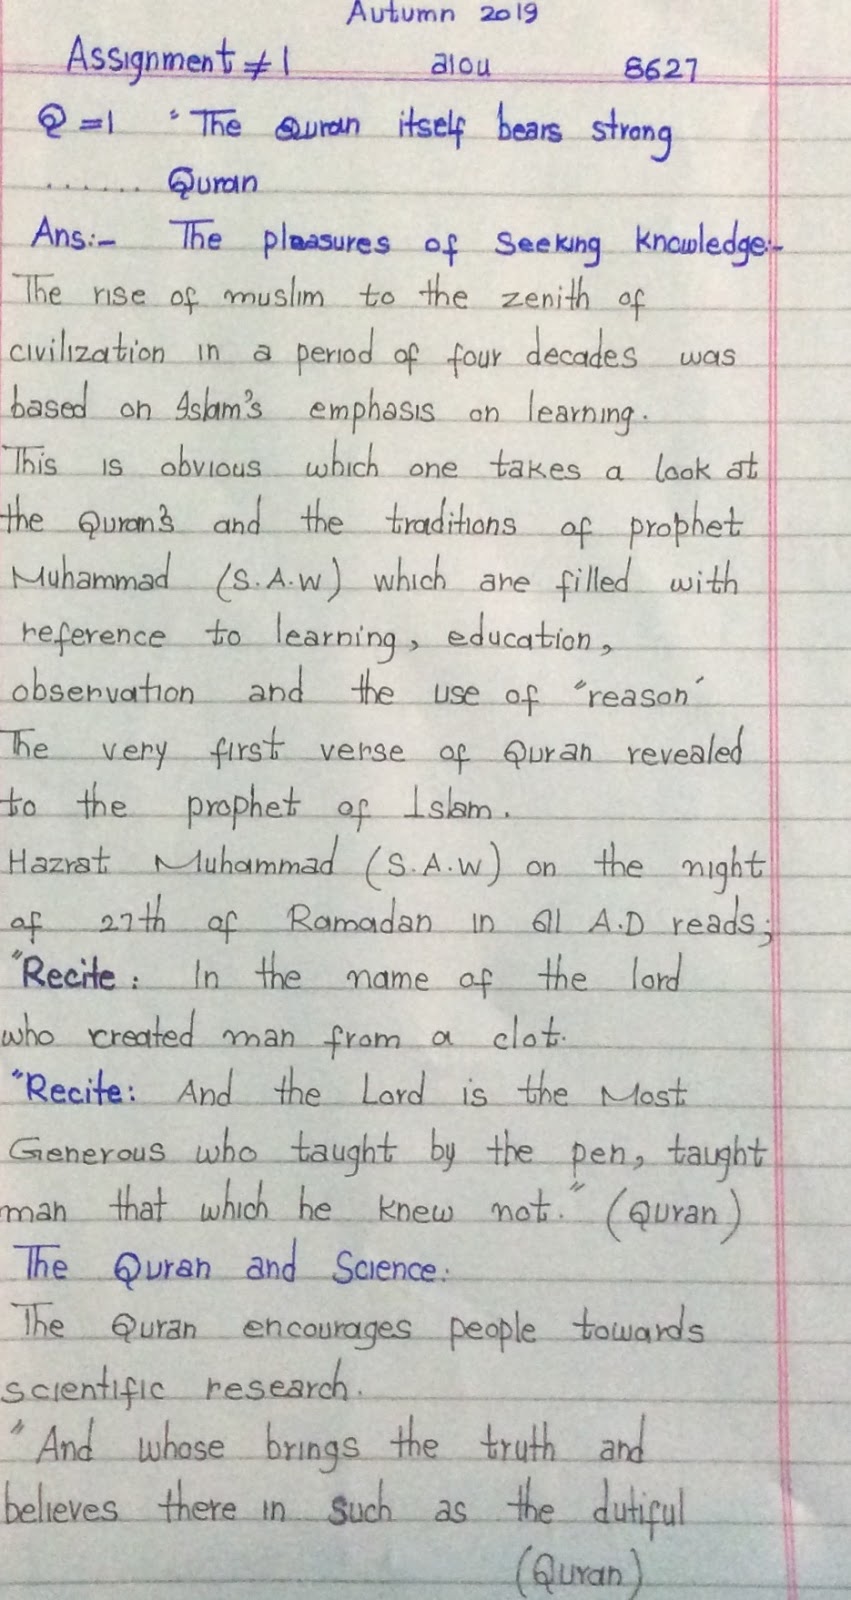 Autumn 2019
Assignment ≠ 1 aiou 8627
Q = 1 "The Quran itself bears strong
....... Quran
Ans:- The pleasures of seeking knowledge:-
The rise of muslim to the zenith of
civilization in a period of four decades was
based on Islam's emphasis on learning.
This is obvious which one takes a look at
the Quran's and the traditions of prophet
Muhammad (S.A.W) which are filled with
reference to learning, education,
observation and the use of "reason"
The very first verse of Quran revealed
to the prophet of Islam.
Hazrat Muhammad (S.A.W) on the night
of 27th of Ramadan in 611 A.D reads;
"Recite: In the name of the lord
who created man from a clot.
"Recite: And the Lord is the Most
Generous who taught by the pen, taught
man that which he knew not." (Quran)
The Quran and Science:
The Quran encourages people towards
scientific research.
"And whose brings the truth and
believes there in such as the dutiful
(Quran)